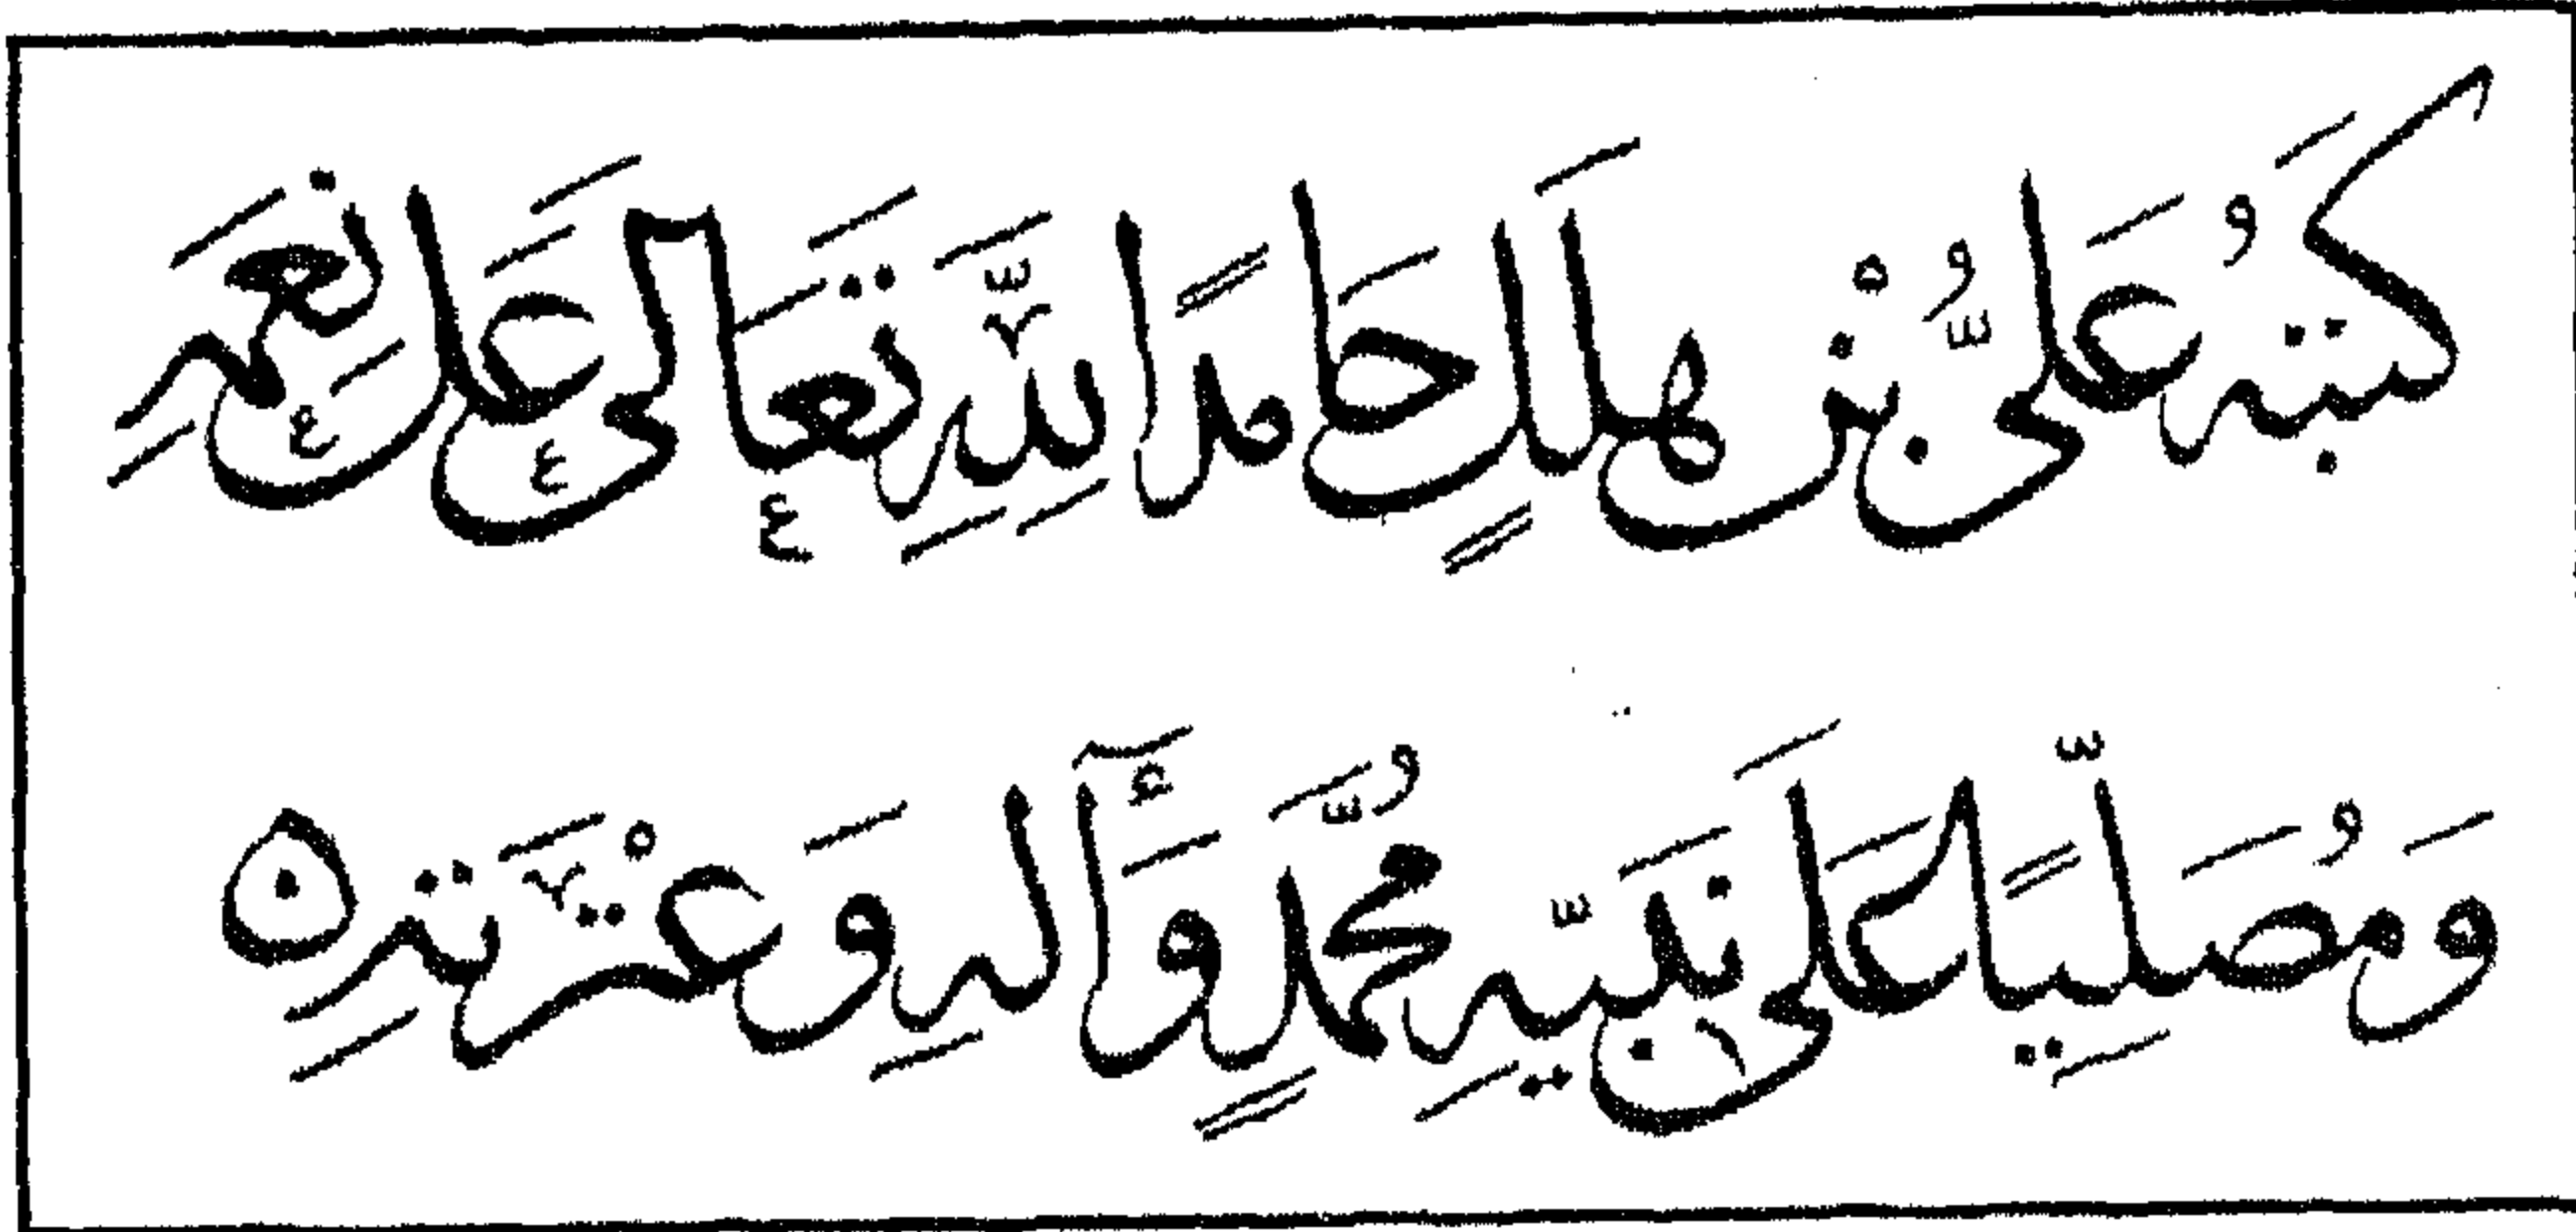 كَتَبَهُ عَلِىُّ بْنُ هِلَالٍ حَامِدًا لِلَّهِ تَعَالَى عَلَى نِعَمِهِ
وَمُصَلِّيًا عَلَى نَبِيِّهِ مُحَمَّدٍ وَآلِهِ وَعِتْرَتِهِ ه